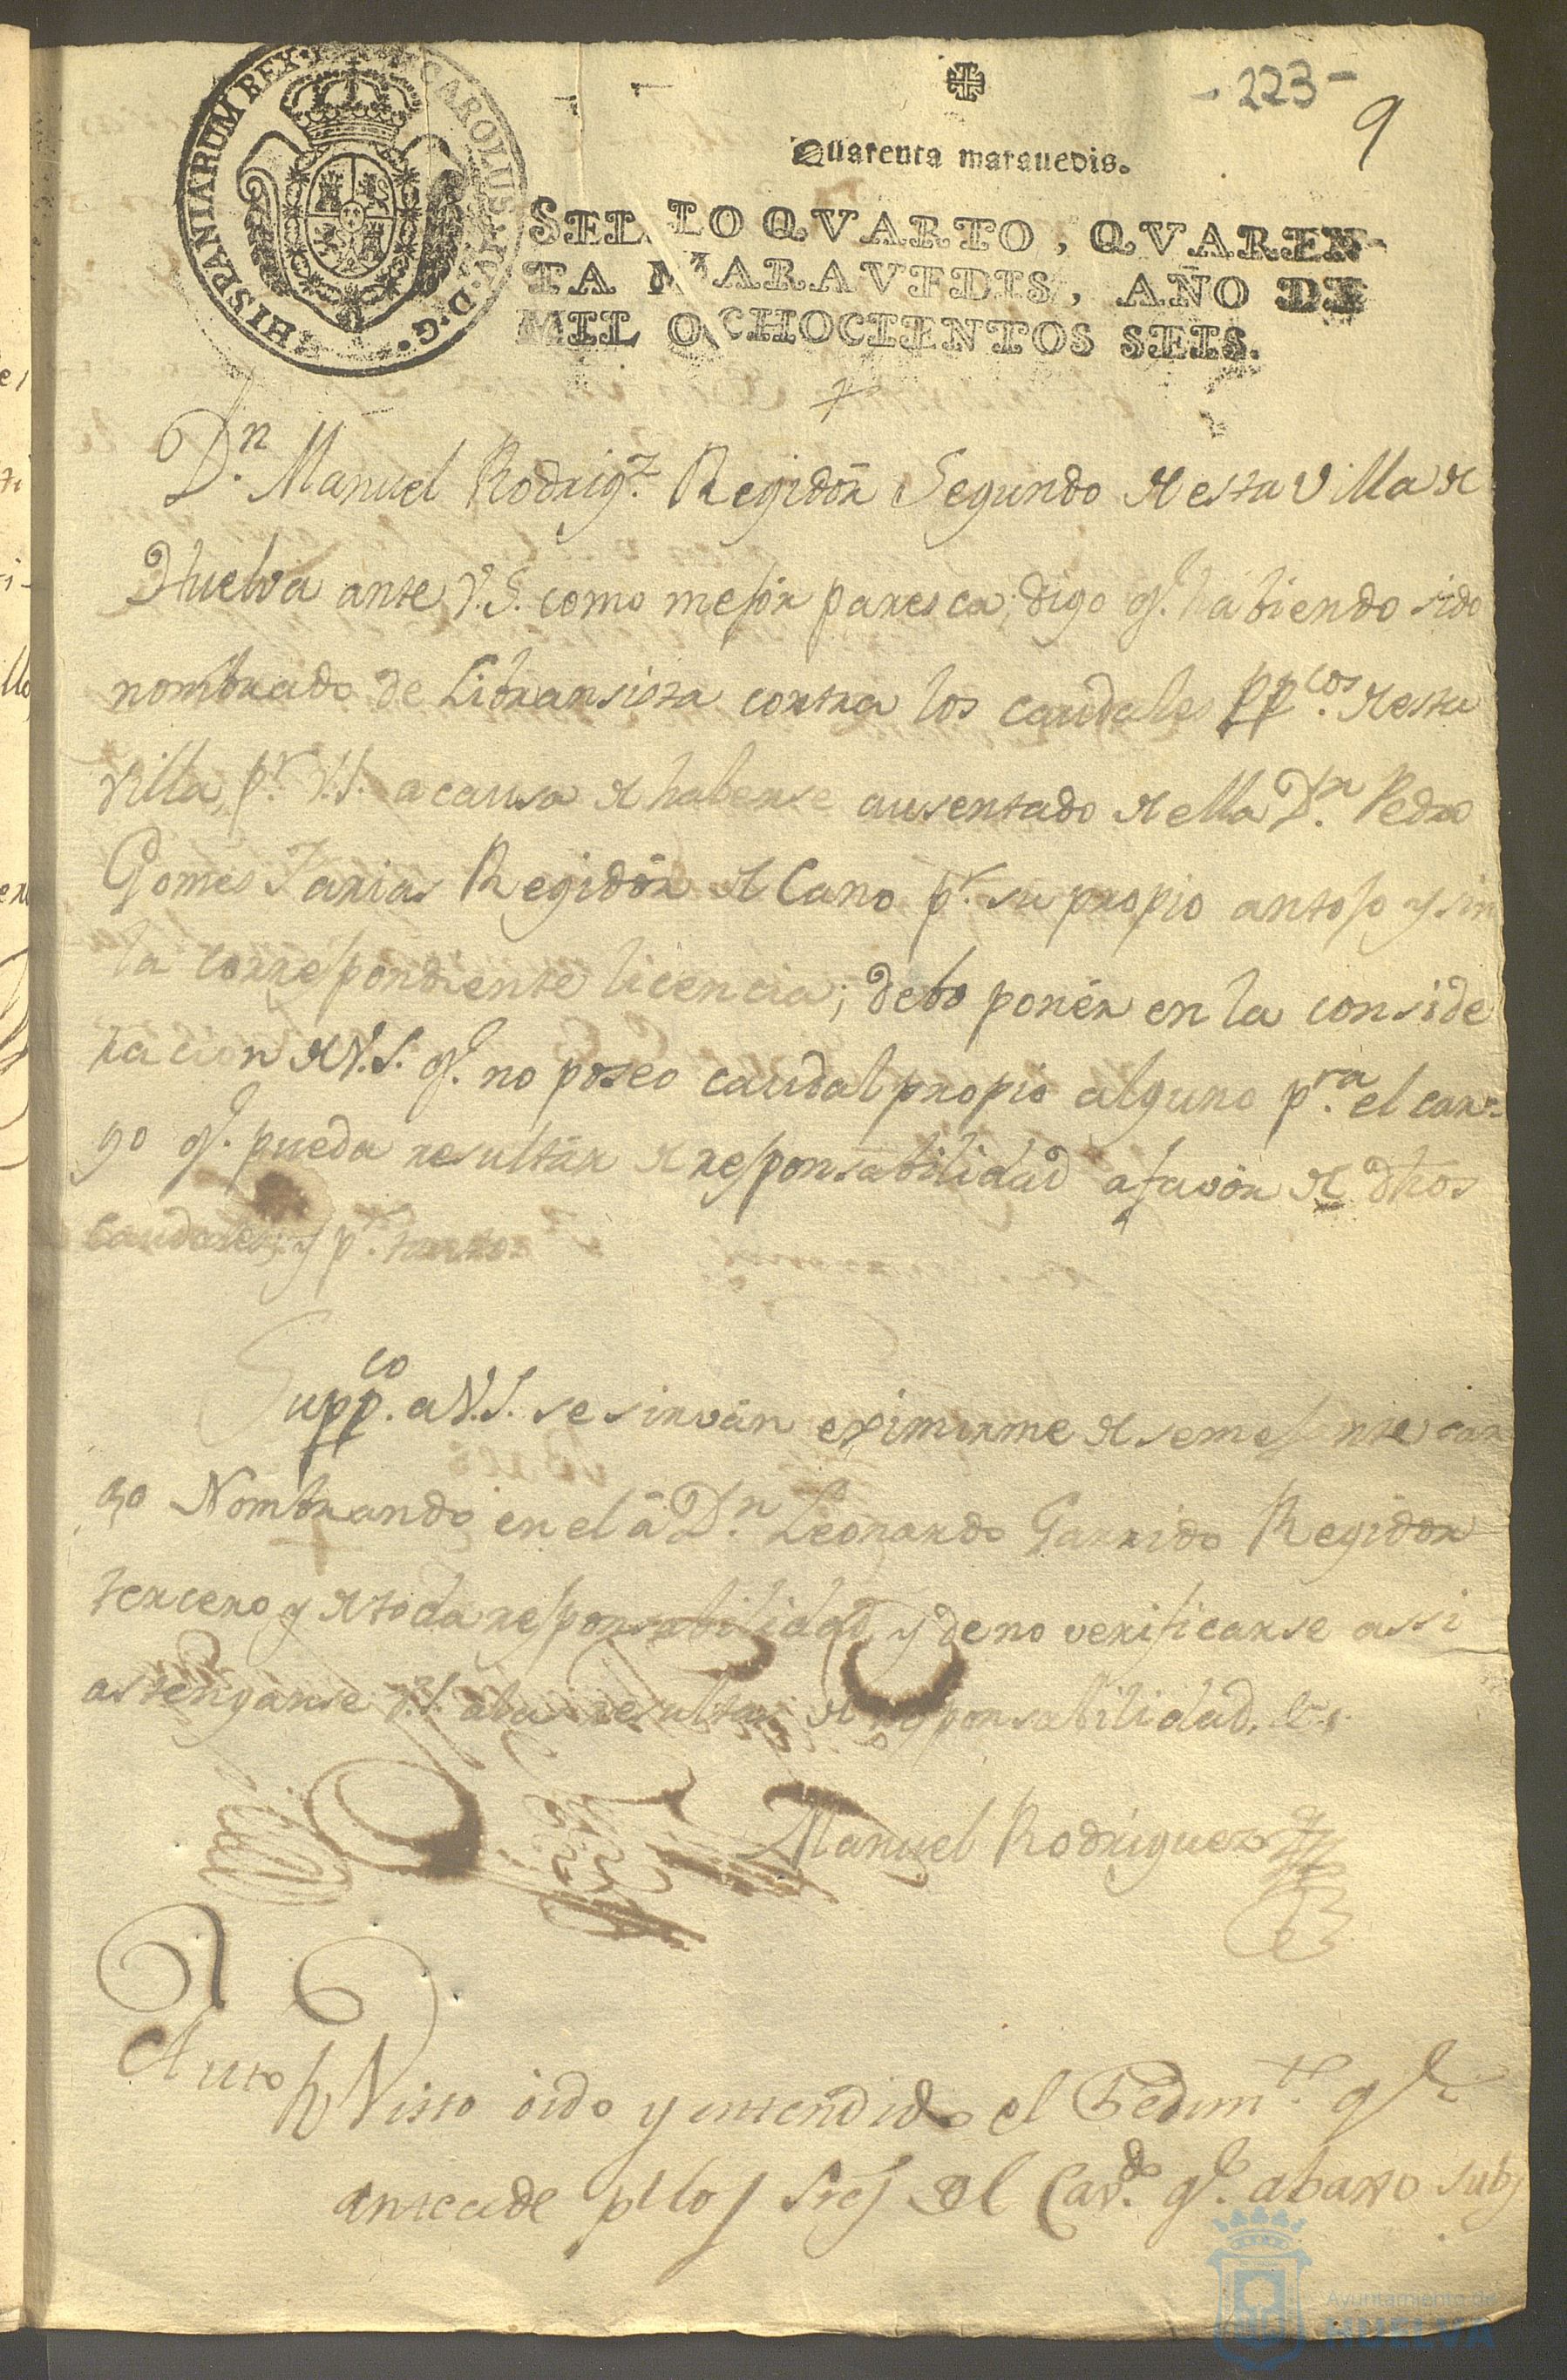 - 223 -
9
Quarenta marauedis.
HISPANIARUM REX. CAROLUS IV. D. G.
SELLO QVARTO, QVAREN-
TA MARAVEDIS, AÑO DE
MIL OCHOCIENTOS SEIS.
Dn. Manuel Rodrigz. Regidor Segundo de esta Villa de
Huelva ante V.S. como mejor paresca; digo q.e habiendo sido
nombrado de Libransista contra los caudales ppcos. de esta
Villa, pr. V.S. a causa de haberse ausentado de ella Dn. Pedro
Gomes Farias Regidor de Cano pr. su propio antojo y sin
la correspondiente licencia; debo poner en la conside
racion de V.S. q.e no poseo caudal propio alguno p.ra el car-
go q.e pueda resultar de responsabilidad a favor de dhos
caudales; y pr. tanto
Suppco. a V.S. se sirvan eximirme de semejante car
go Nombrando en el á Dn. Leonardo Garrido Regidor
tercero y de toda responsabilidad, y de no verificarse assi
astenganse V.S. a las resultas de responsabilidad, &a.
Manuel Rodriguez
Auto Visto oido y entendido el Pedimto. q.e
antecede pr los Sres del Cavdo. q.e abaxo subs
Ayuntamiento de
HUELVA